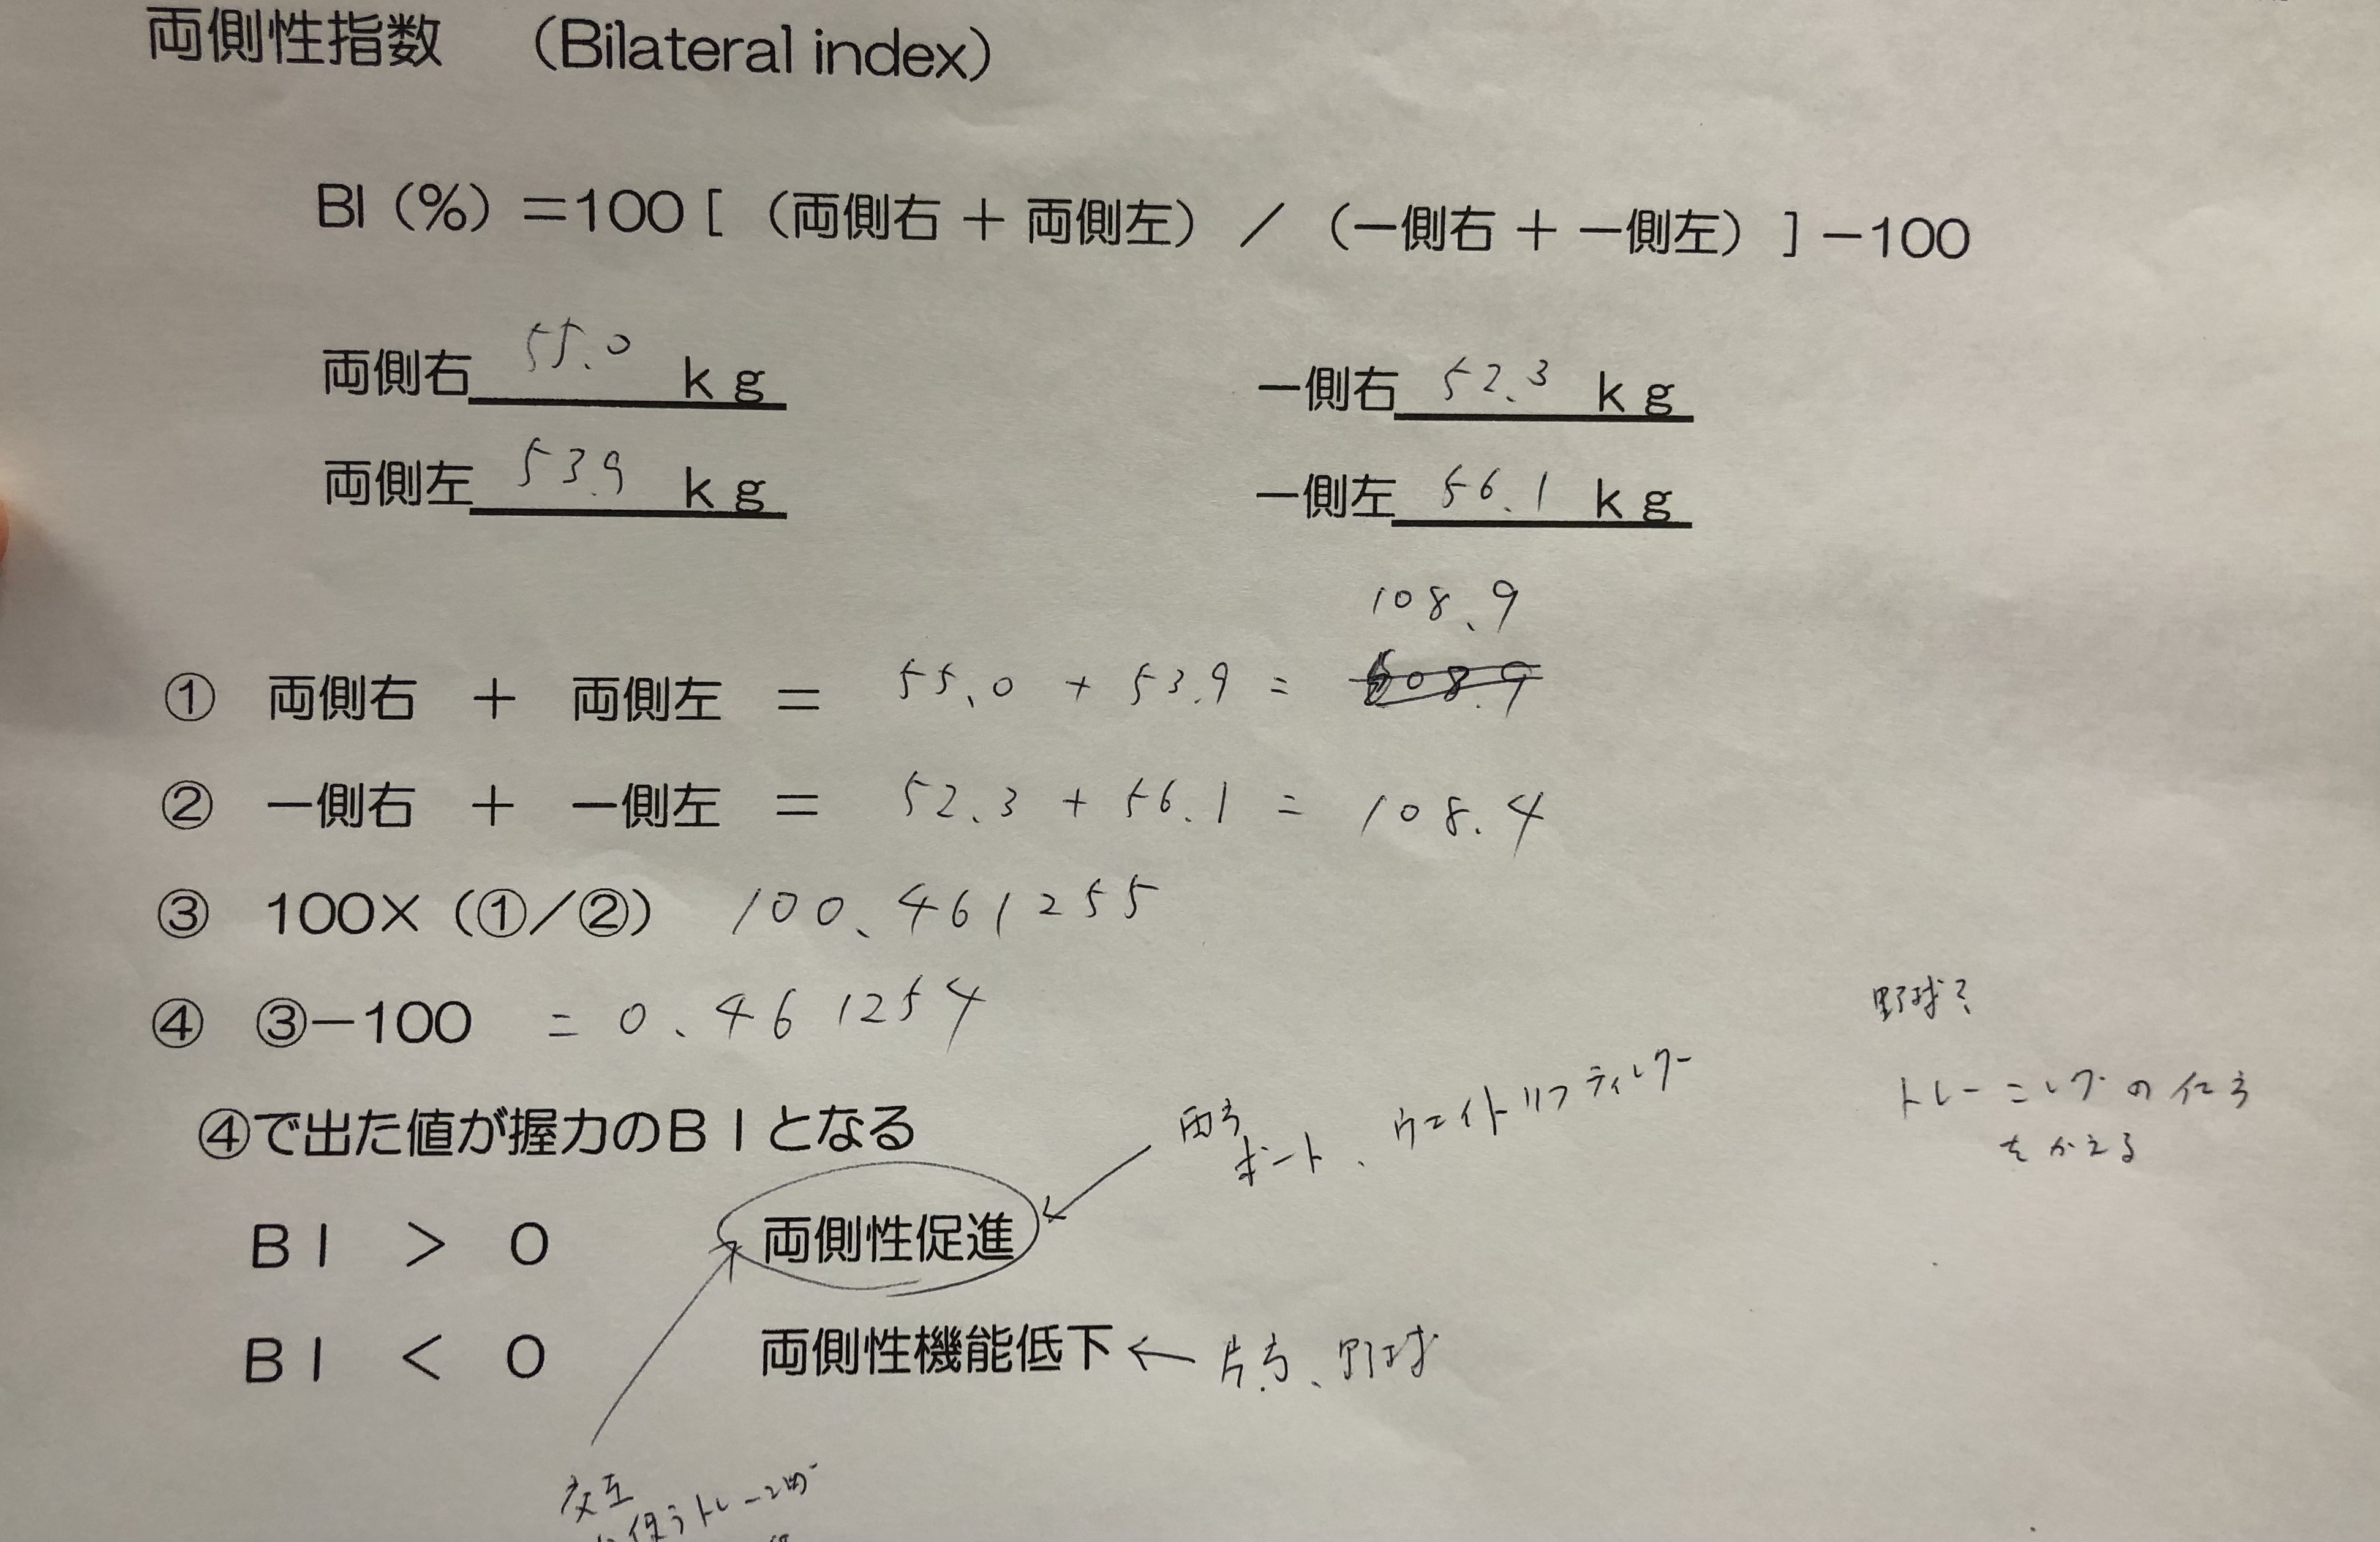 両側性指数 （Bilateral index）
BI（%）＝100［（両側右 ＋ 両側左）／（一側右 ＋ 一側左）］－100
両側右 55.0 kg 一側右 52.3 kg
両側左 53.9 kg 一側左 56.1 kg
108.9
① 両側右 ＋ 両側左 ＝ 55.0 + 53.9 =
② 一側右 ＋ 一側左 ＝ 52.3 + 56.1 = 108.4
③ 100×（①／②） 100.461255
④ ③－100 = 0.461254
野球?
トレーニングの仕方
をかえる
④で出た値が握力のＢＩとなる
両方
ボート、ウエイトリフティング
ＢＩ ＞ ０ 両側性促進
ＢＩ ＜ ０ 両側性機能低下 ← 片方、野球
交互
使うトレーニング